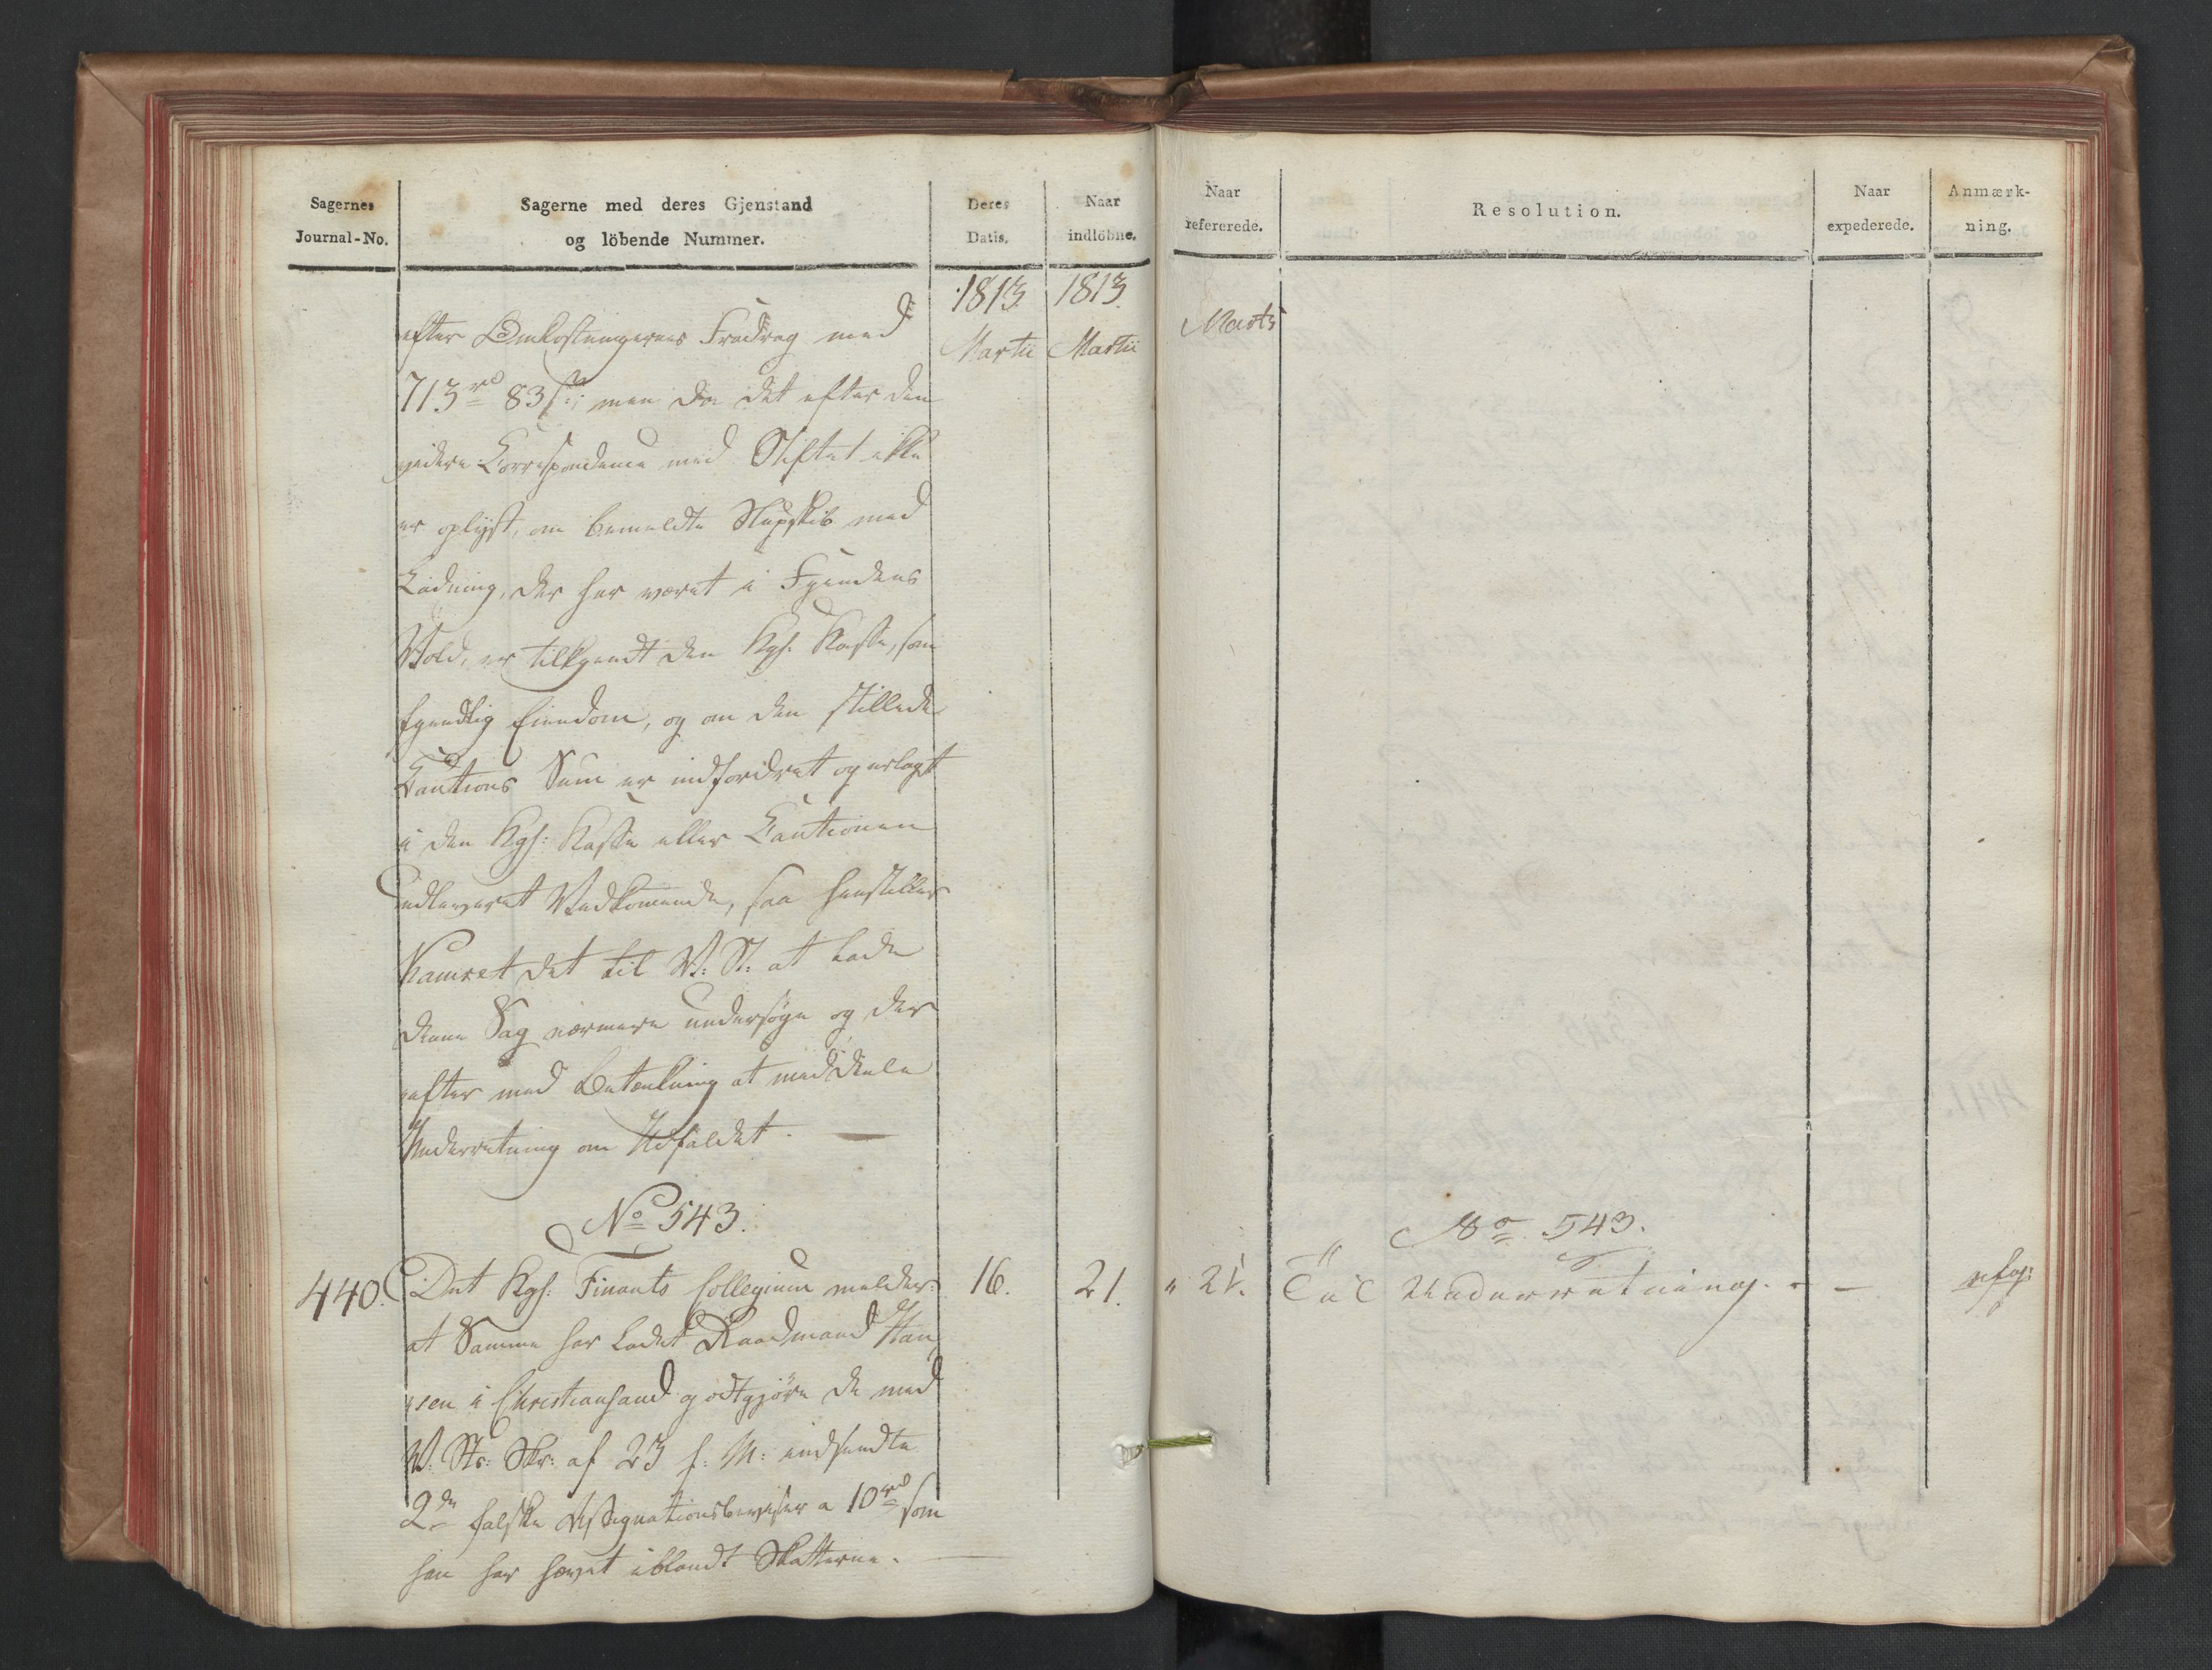 Sagernes
Journal-No.
Sagerne med deres Gjenstand
og löbende Nummer.
Deres
Datis.
Naar
indlöbne.
1813
Martii
1813.
Martii
efter Omkostningernes Fradrag med
713 rd 83 s:; men da det efter den
videre Correspondence med Stiftet ikke
er oplyst, om bemeldte Skib med
Ladning, der har været i Fjendens
Vold, er tilkjendt den Kgl. Kasse, som
fjendtlig Eiendom, og om den stillede
Cautions Sum er indfordret og erlagt
i den Kgl: Kasse eller Cautionen
udleveret Vedkommende, saa henstiller
Kamret det til V: St: at lade
denne Sag nærmere undersøge og der
efter med Betænkning at meddeele
Underretning om Udfaldet. —
No 543.
440.
Det Kgl: Finants Collegium melder
at Samme har ladet Raadmand Han
sen i Christiansand godtgjöre de med
V. Sts: Skr: af 23 f: M: indsendte
2de falske Assignationsbeviser a 10 rd som
han har hævet iblandt Skatterne. —
16.
21.
Naar
refererede.
Resolution.
Naar
expederede.
Anmærk-
ning.
Marts
No 543.
" 21.
Til Underretning. - —